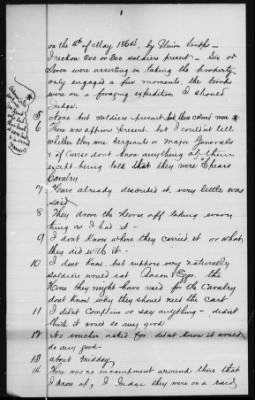 on the 12th of May 1864, by Union troops -
I reckon 200 or 300 soldiers present - Six or
Seven were assisting in taking the property
only engaged a few moments, the troops
were on a foraging expedition I should
judge.
5 None but soldiers present
6 There was officers present, but I couldnt tell
whether they were Sergeants or Major Generals
of course dont know anything of them
except being told that they were Spears
Cavalry
7 Have already described it, very little was
said
8 They drove the horse off taking every
thing as I has it -
9 I dont Know where they carried it or what
they did with it -
10 I dont know, but suppose very naturally
soldiers would eat Bacon & Eggs the
Horse they might have used for the Cavalry
dont know why they should need the cart
11 I didnt complain or say anything - didnt
think it would do any good
12 No voucher asked for. didnt know it would
do any good -
13 about midday
14 There was no encampment around there that
I know of, I Judge they were on a raid